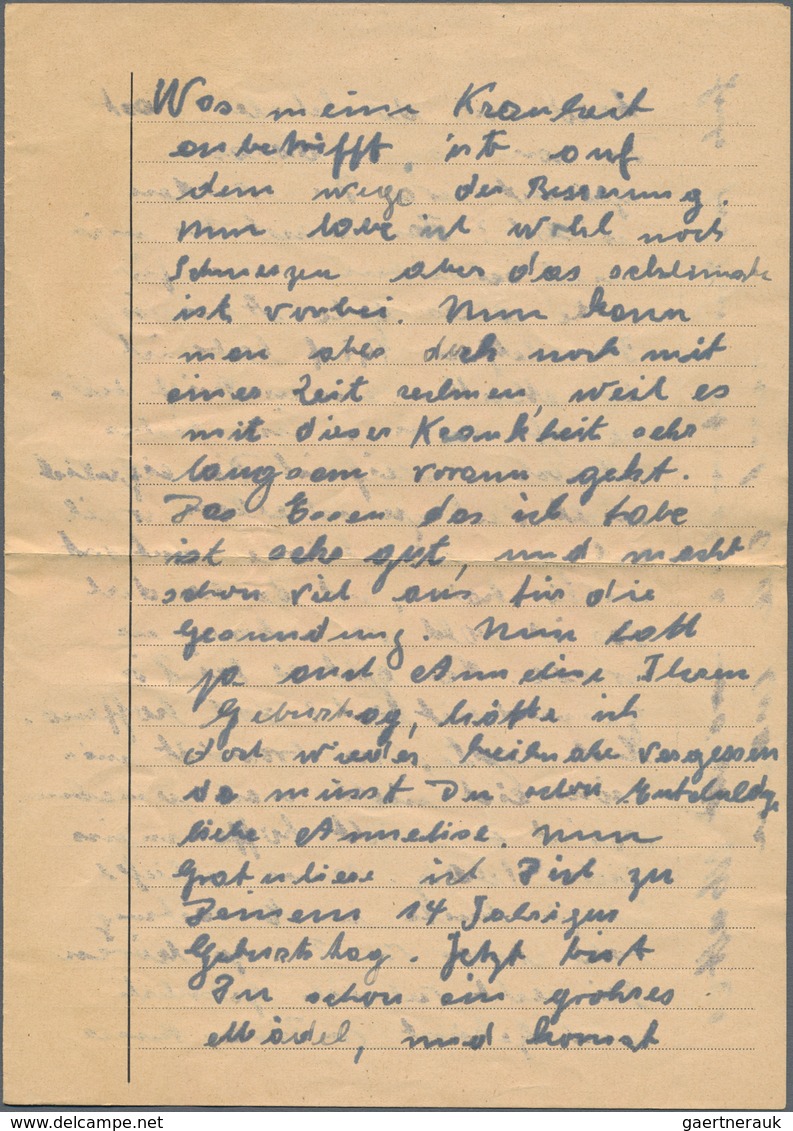 Was meine Krankeit
anbetrifft ist auf
dem wege der Besserung.
Nun habe ich wohl noch
Schmerzen aber das schlimmste
ist vorbei. Nun kann
man aber doch noch mit
einer Zeit rechnen, weil es
mit dieser Krankheit sehr
langsam vorann geht.
Das Essen das ich habe
ist sehr gut, und macht
schon viel aus für die
Gesundung. Nun hatt
ja auch Annelise Ihren
Geburtstag, hätte ich
doch wieder beinahe vergessen
da müsst Du schon
liebe Annelise. Nun
Gratuliese ich Dich zu
Deinem 14 Jahrigen
Geburtstag. Jetzt bist
Du schon ein grohses
Mädel, und komst
gaertnerauk